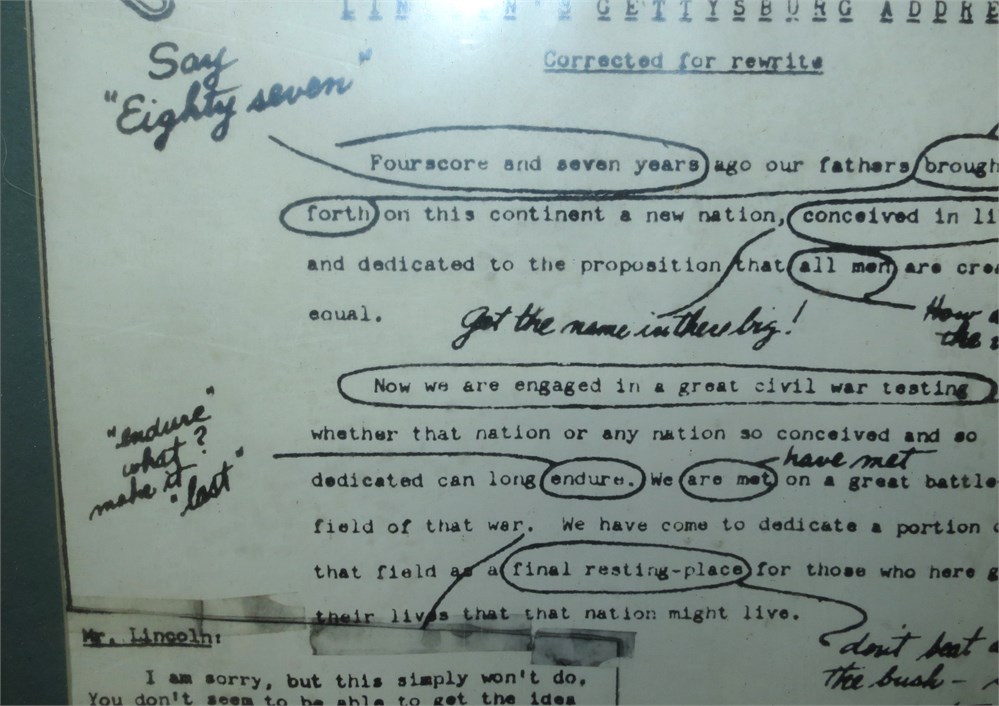 GETTYSBURG
Corrected for rewrite
Say
"Eighty seven"
Fourscore and seven years ago our fathers
forth on this continent a new nation, conceived in
and dedicated to the proposition that all men are
equal.
Get the name in there big!
How
the
Now we are engaged in a great civil war testing
"endure"
what?
make it
"last"
whether that nation or any nation so conceived and so
have met
dedicated can long endure. We are met on a great battle-
field of that war. We have come to dedicate a portion
that field as a final resting-place for those who here
their lives that that nation might live.
don't beat
the bush -
Mr. Lincoln:
I am sorry, but this simply won't do.
You don't seem to be able to get the idea